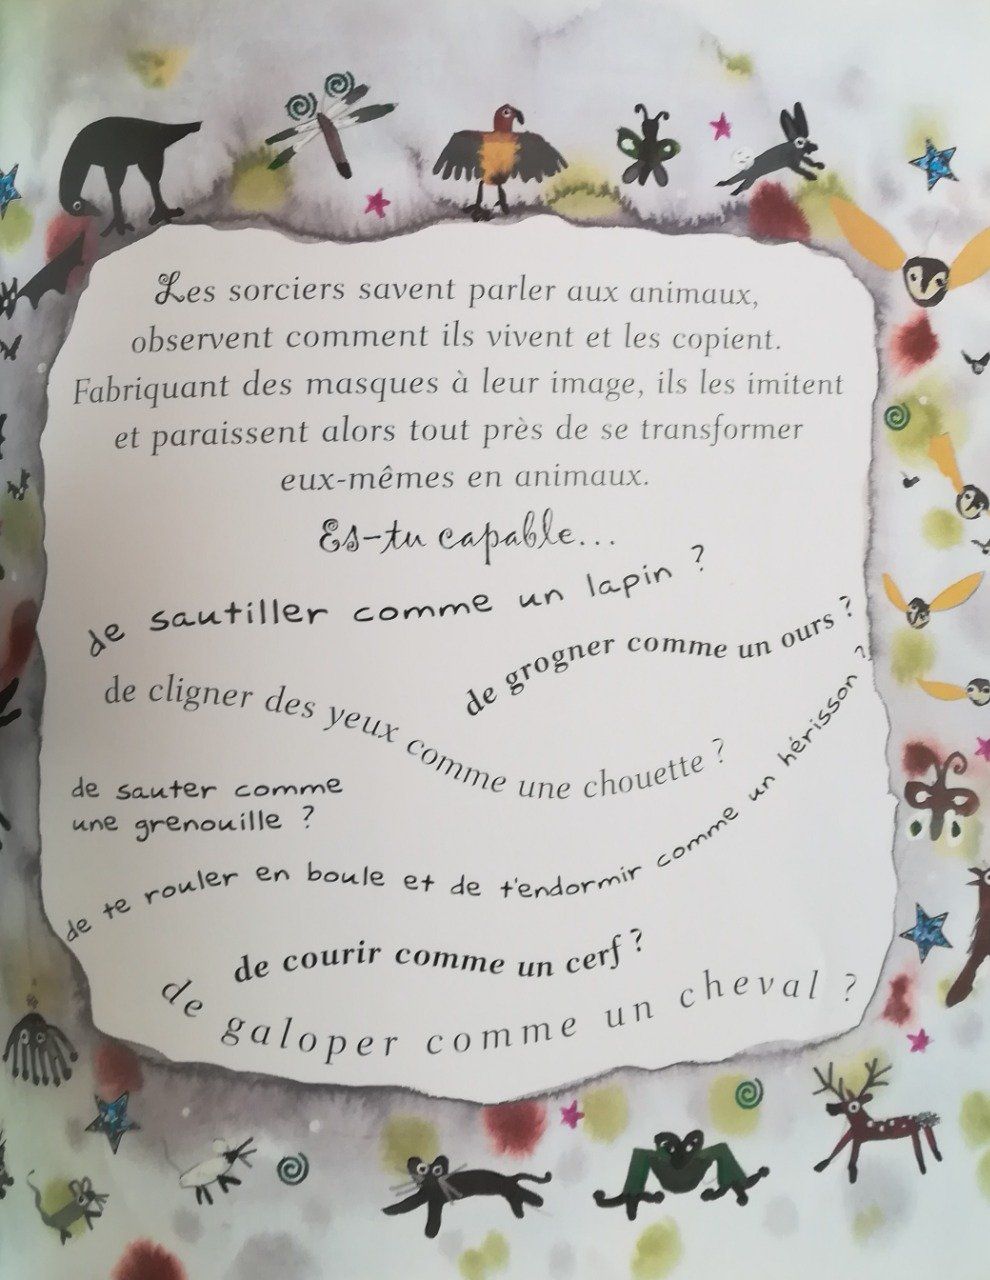 Les sorciers savent parler aux animaux,
observent comment ils vivent et les copient.
Fabriquant des masques à leur image, ils les imitent
et paraissent alors tout près de se transformer
eux-mêmes en animaux.
Es-tu capable...
de sautiller comme un lapin ?
de grogner comme un ours ?
de cligner des yeux comme une chouette ?
de sauter comme
une grenouille ?
de te rouler en boule et de t'endormir comme un hérisson ?
de courir comme un cerf ?
de galoper comme un cheval ?